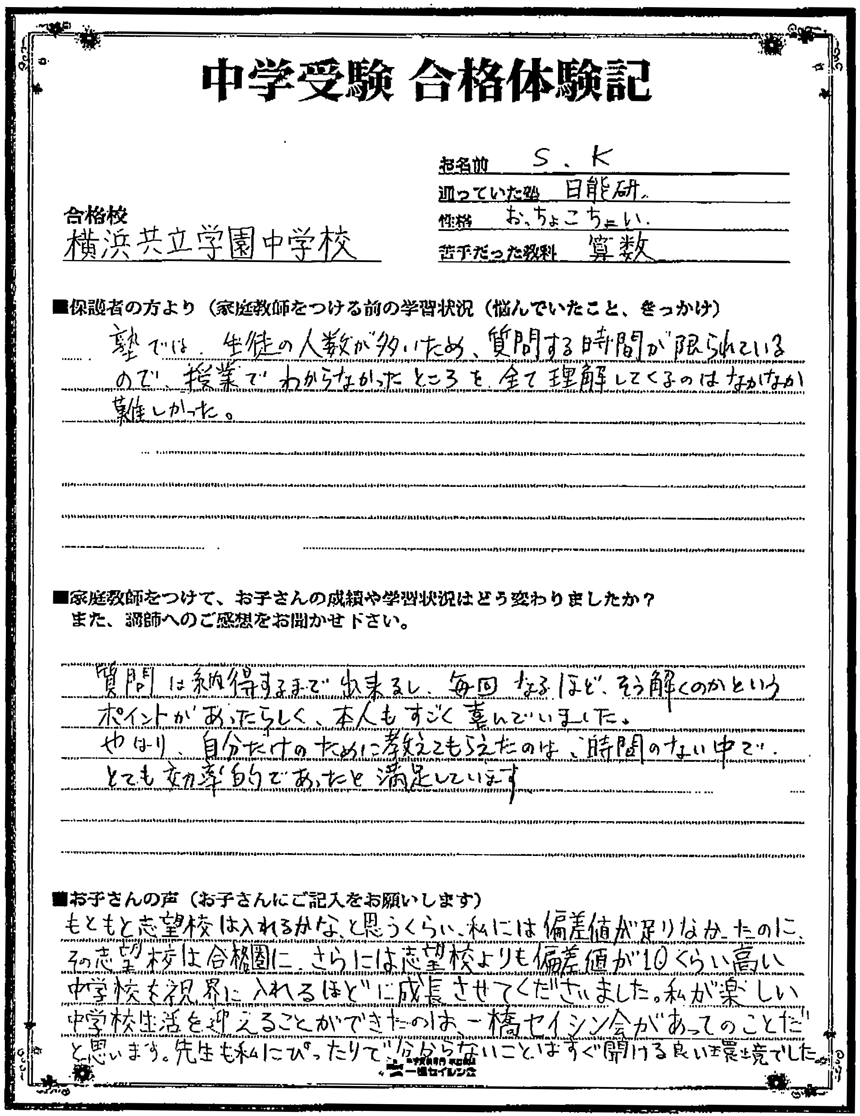 中学受験 合格体験記
お名前 S.K
通っていた塾 日能研
性格 おっちょこちょい
苦手だった教科 算数
合格校
横浜共立学園中学校
■保護者の方より（家庭教師をつける前の学習状況（悩んでいたこと、きっかけ）
塾では、生徒の人数が多いため、質問する時間が限られている
ので、授業でわからなかったところを全て理解してくるのはなかなか
難しかった。
■家庭教師をつけて、お子さんの成績や学習状況はどう変わりましたか？
また、講師へのご感想をお聞かせ下さい。
質問は納得するまで出来るし、毎回なるほど、そう解くのかという
ポイントがあったらしく、本人もすごく喜んでいました。
やはり、自分だけのために教えてもらえたのは、時間のない中で、
とても効率的であったと満足しています
■お子さんの声（お子さんにご記入をお願いします）
もともと志望校は入れるかな、と思うくらい、私には偏差値が足りなかったのに、
その志望校は合格圏に、さらには志望校よりも偏差値が10くらい高い
中学校を視界に入れるほどに成長させてくださいました。私が楽しい
中学校生活を迎えることができたのは、一橋セイシン会があってのことだ
と思います。先生も私にぴったりで分からないことはすぐ聞ける良い環境でした
一橋セイシン会